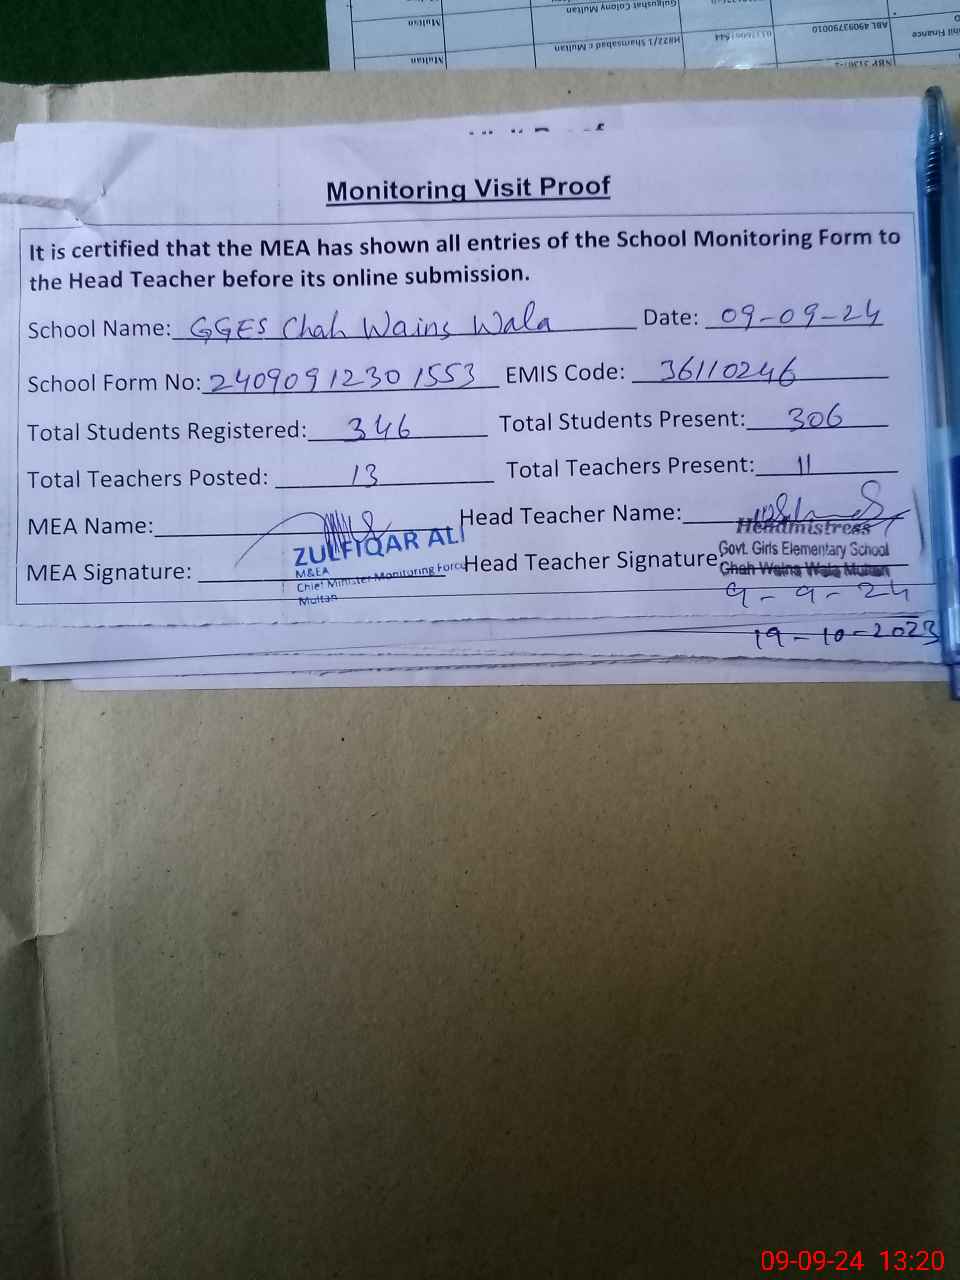 Multan
Gulgushat Colony Multan
Multan
H822/1 Shamsabad c Multan
ABL 4909790010
Finance
Monitoring Visit Proof
It is certified that the MEA has shown all entries of the School Monitoring Form to
the Head Teacher before its online submission.
School Name: GGES Chah Wains Wala Date: 09-09-24
School Form No: 24090912301553 EMIS Code: 36110246
Total Students Registered: 346 Total Students Present: 306
Total Teachers Posted: 13 Total Teachers Present: 11
MEA Name: Head Teacher Name:
Headmistress
ZULFIQAR ALI
Govt. Girls Elementary School
MEA Signature: Head Teacher Signature
M&EA
Chah Wains Wala Multan
Chief Minister Monitoring Force
Multan
9-9-24
19-10-2023
09-09-24 13:20